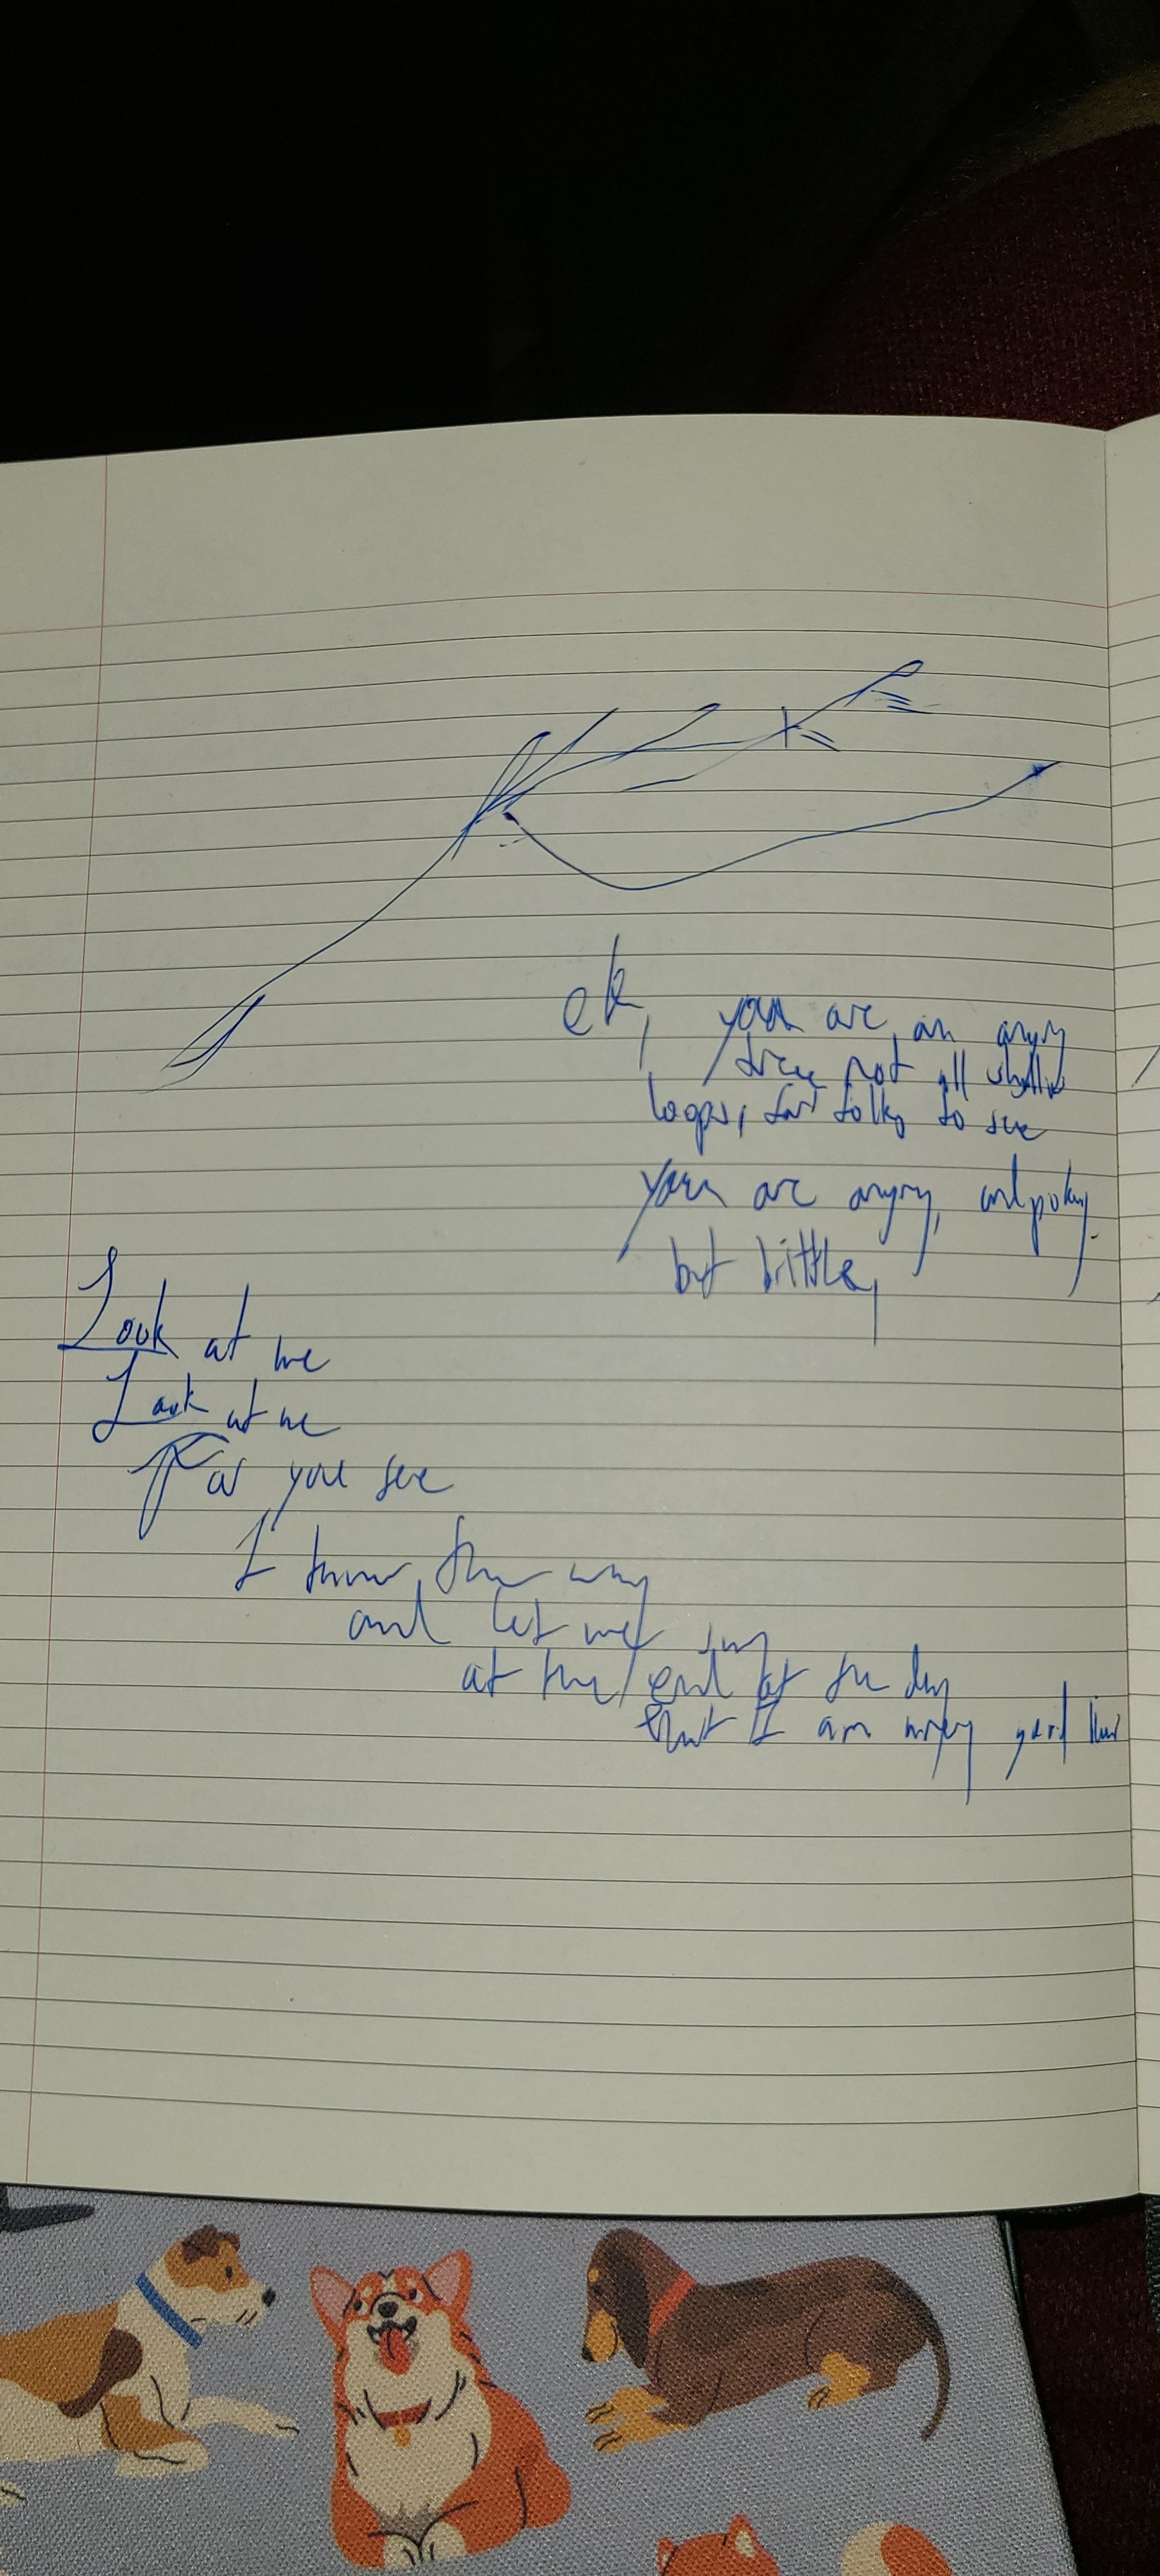 ok, you are an angry
tree not all
loops, for folks to see
you are angry, and poky
but little,
Look at me
Look at me
For you see
I know the way
and let me say
at the end of the day
that I am angry